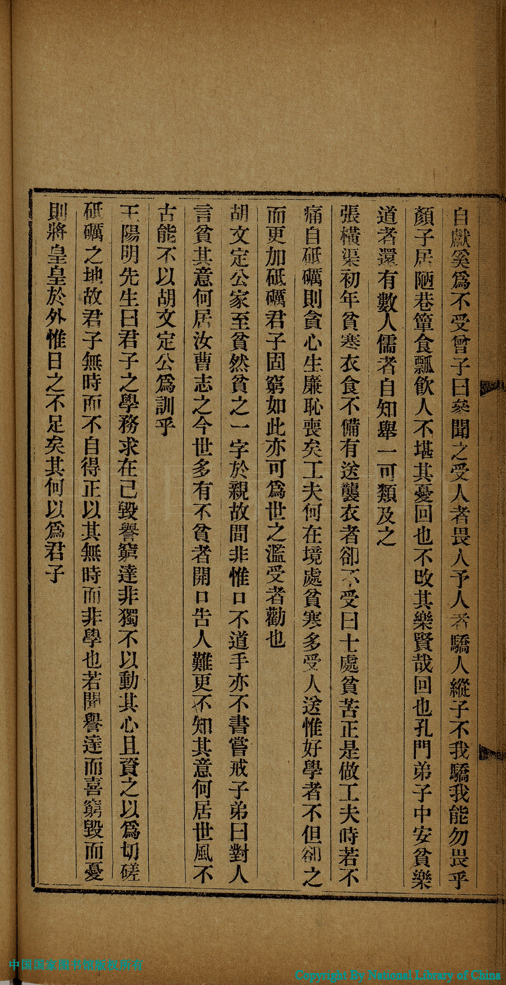 自獻奚爲不受曾子曰參聞之受人者畏人予人者驕人縱子不我驕我能勿畏乎
顏子居陋巷簞食瓢飮人不堪其憂回也不改其樂賢哉回也孔門弟子中安貧樂
道者還有數人儒者自知舉一可類及之
張橫渠初年貧寒衣食不備有送襲衣者卻不受曰士處貧苦正是做工夫時若不
痛自砥礪則貪心生廉恥喪矣工夫何在境處貧寒多受人送惟好學者不但卻之
而更加砥礪君子固窮如此亦可爲世之濫受者勸也
胡文定公家至貧然貧之一字於親故間非惟口不道手亦不書嘗戒子弟曰對人
言貧其意何居汝曹志之今世多有不貧者開口告人難更不知其意何居世風不
古能不以胡文定公爲訓乎
王陽明先生曰君子之學務求在己毀譽窮達非獨不以動其心且資之以爲切磋
砥礪之地故君子無時而不自得正以其無時而非學也若聞譽達而喜窮毀而憂
則將皇皇於外惟日之不足矣其何以爲君子
中国国家图书馆版权所有
Copyright By National Library of China